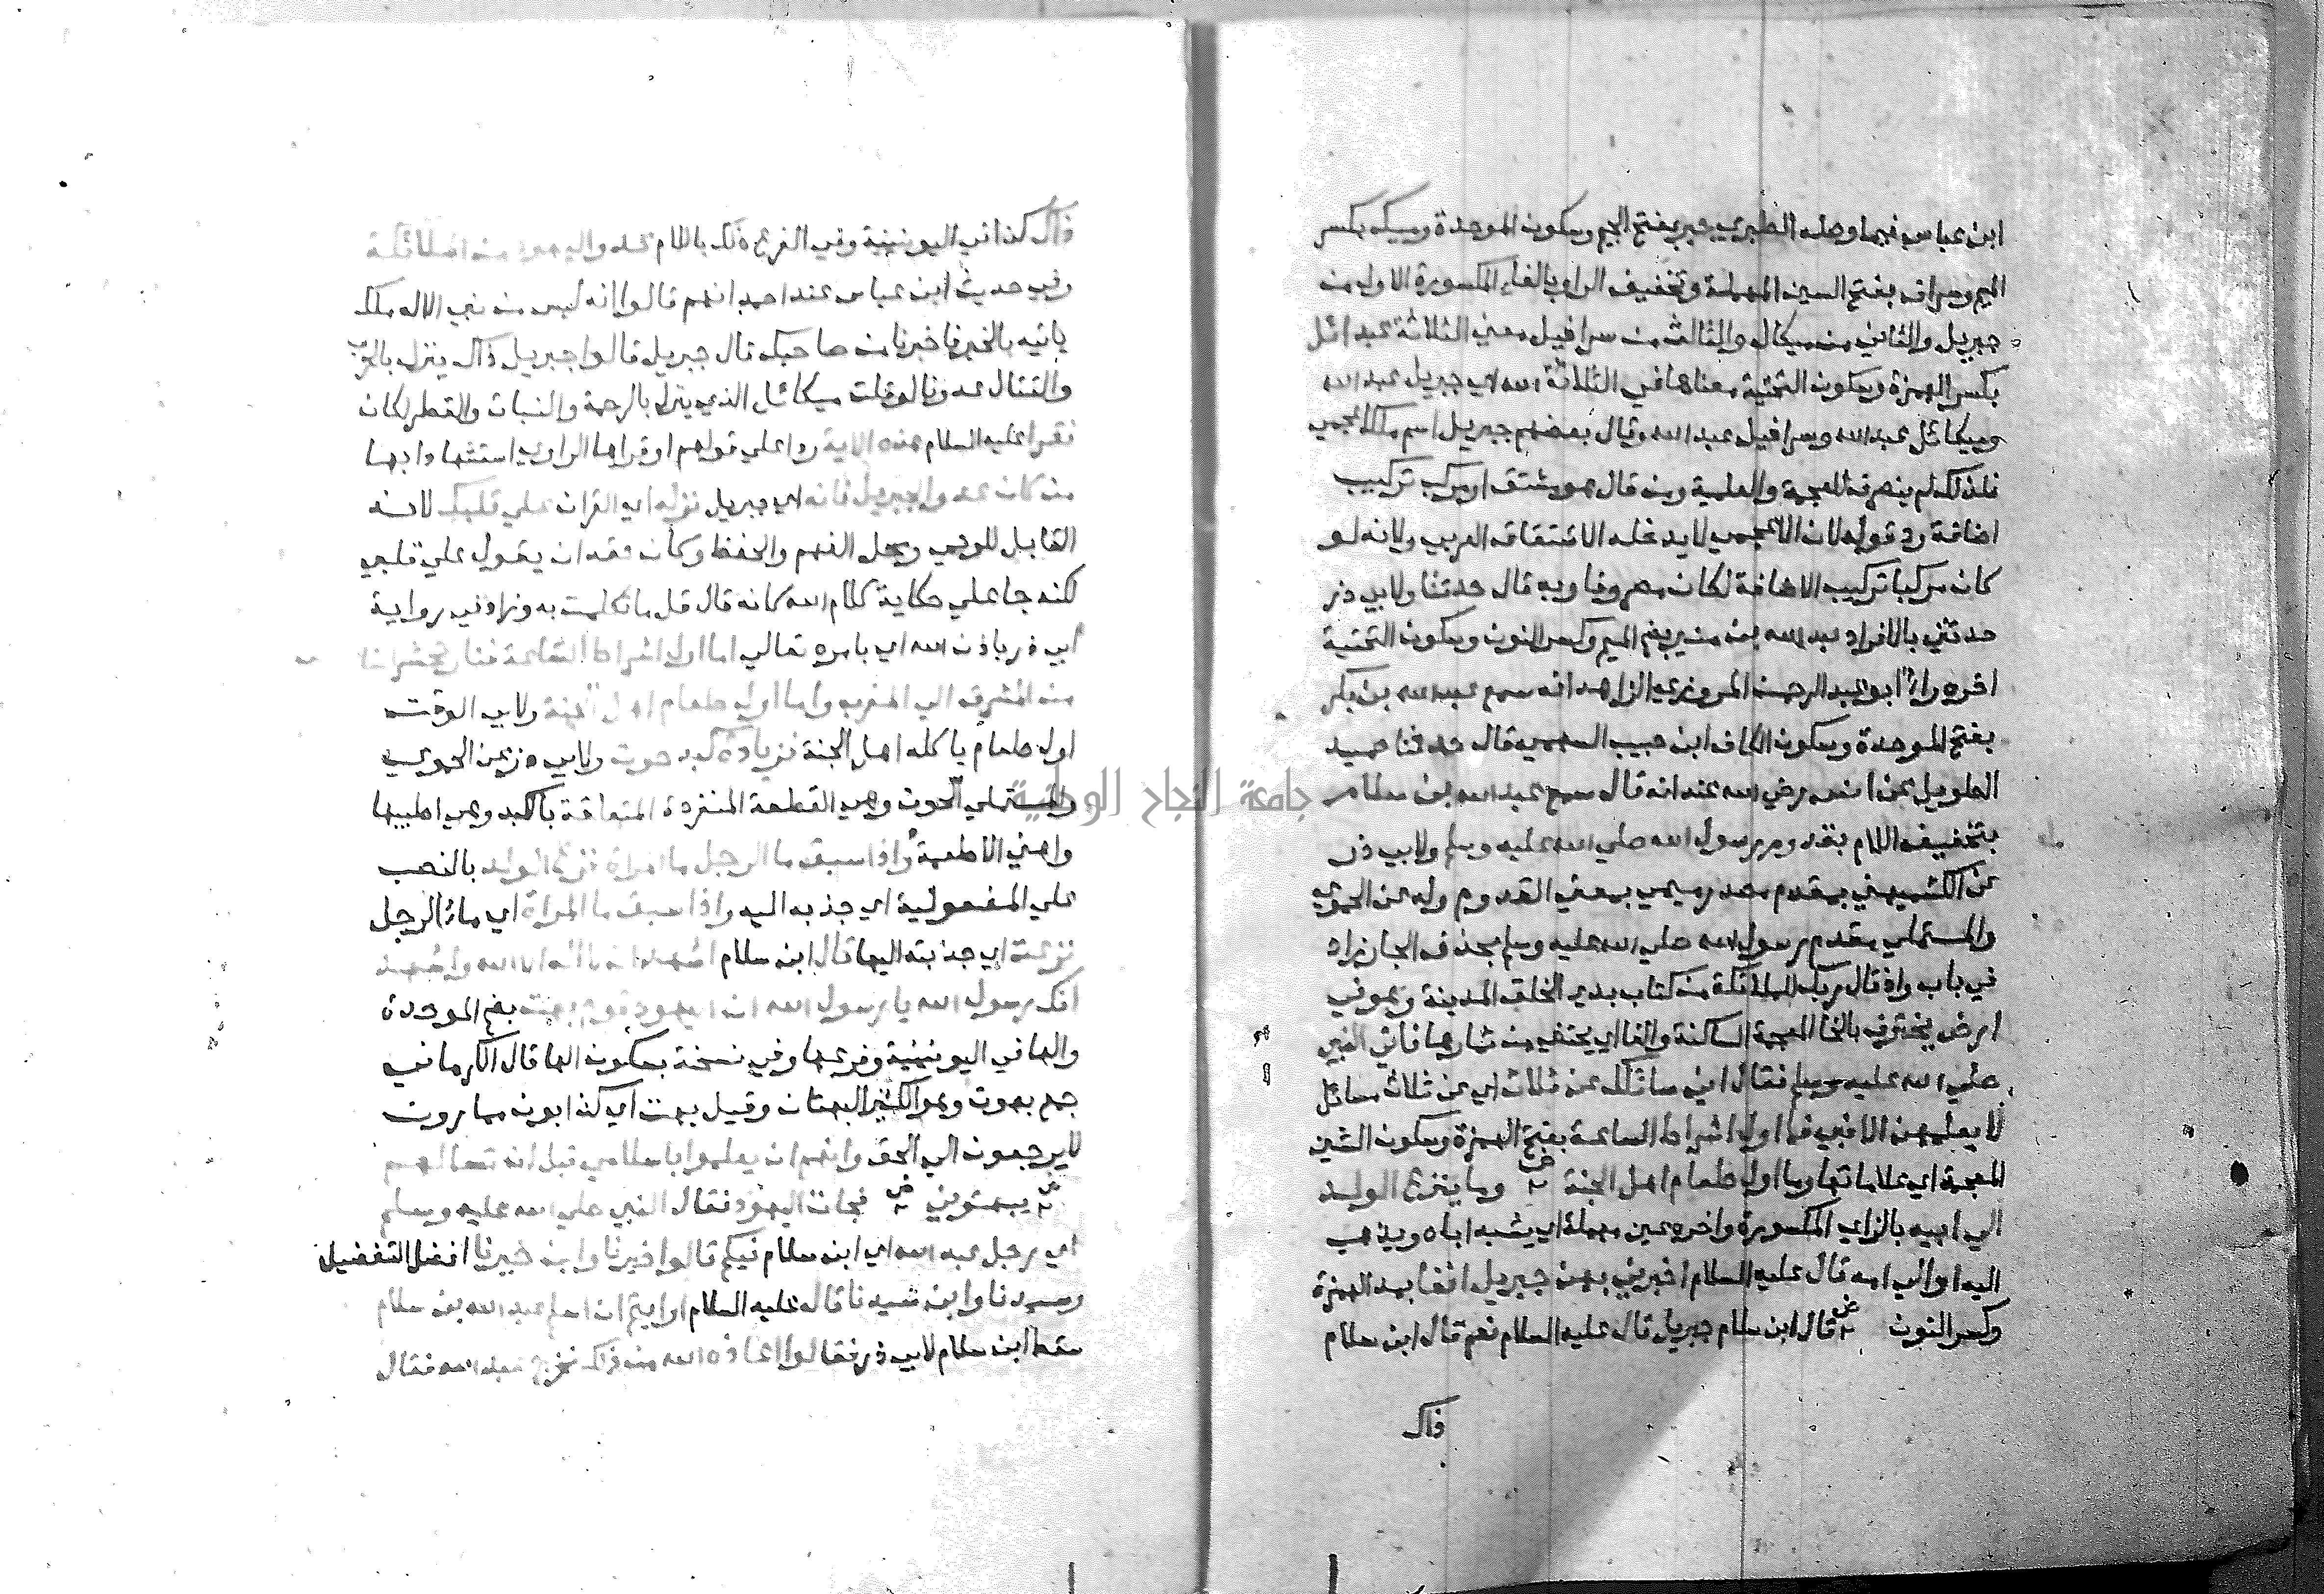 ابن عباس فيما وصله الطبري جبر بفتح الجيم وسكون الموحدة وميك بكسر
الميم وسراف بفتح السين المهملة وتخفيف الرا وبالفاء المكسورة الاول من
جبريل والثاني من ميكال والثالث من سرافيل معني الثلاثة عبد ائل
بكسر الهمزة وسكون التحتية معناها في الثلاثة الله اي جبريل عبد الله
وميكائل عبد الله وسرافيل عبد الله وقال بعضهم جبريل اسم ملك اعجمي
فلذلك لم ينصرف للعجمة والعلمية ومن قال هو مشتق او مركب تركيب
اضافة رد قوله لان الاعجمي لا يدخله الاشتقاق العربي ولانه لو
كان مركبا تركيب الاضافة لكان مصروفا وبه قال حدثنا ولابي ذر
حدثني بالافراد عبد الله بن منير بضم الميم وكسر النون وسكون التحتية
اخره راء ابو عبد الرحمن المروزي الزاهد انه سمع عبد الله بن بكر
بفتح الموحدة وسكون الكاف ابن حبيب السهمي قال حدثنا حميد
الطويل عن انس رضي الله عنه انه قال سمع عبد الله بن سلام
بتخفيف اللام بقدوم رسول الله صلي الله عليه وسلم ولابي ذر
عن الكشميهني بمقدم مصدر ميمي بمعني القدوم وله عن الحموي
والمستملي مقدم رسول الله صلي الله عليه وسلم بحذف الجار زاد
في باب واذ قال ربك للملائكة من كتاب بدء الخلق المدينة وهو في
ارض يخترف بالخا المعجمة الساكنة والفا اي يجتني من ثمارها فاتي النبي
صلي الله عليه وسلم فقال اني سائلك عن ثلاث اي عن ثلاث مسائل
لا يعلمهن الا نبي فما اول اشراط الساعة بفتح الهمزة وسكون الشين
المعجمة اي علاماتها وما اول طعام اهل الجنة وما ينزع الولد
الي ابيه بالزاي المكسورة واخره عين مهملة اي يشبه اباه ويذهب
اليه او الي امه قال عليه السلام اخبرني بهن جبريل انفا بمد الهمزة
وكسر النون قال ابن سلام جبريل قال عليه السلام نعم قال ابن سلام
ذاك
ذاك كذا في اليونينية وفي الفرع ذلك باللام عدو اليهود من الملائكة
وفي حديث ابن عباس عند احمد انهم قالوا انه ليس من نبي الا له ملك
ياتيه بالخبر فاخبرنا من صاحبك قال جبريل قالوا جبريل ذاك ينزل بالحرب
والقتال عدونا لو قلت ميكائل الذي ينزل بالرحمة والنبات والقطر لكان
فقرا عليه السلام هذه الاية ردا علي قولهم او قراها الراوي استشهادا بها
من كان عدوا لجبريل فانه اي جبريل نزله اي القران علي قلبك لانه
القابل للوحي ومحل الفهم والحفظ وكان حقه ان يقول علي قلبي
لكنه جا علي حكاية كلام الله كانه قال قل ما تكلمت به وزاد في رواية
ابي ذر باذن الله اي بامره تعالي اما اول اشراط الساعة فنار تحشر الناس
من المشرق الي المغرب واما اول طعام اهل الجنة ولابي الوقت
اول طعام ياكله اهل الجنة فزيادة كبد حوت ولابي ذر عن الحموي
والمستملي الحوت وهي القطعة المنفردة المتعلقة بالكبد وهي اطيبها
واهني الاطعمة واذا سبق ما الرجل ما المراة نزع الولد بالنصب
علي المفعولية اي جذبه اليه واذا سبق ما المراة اي ماء الرجل
نزعت اي جذبته اليها قال ابن سلام اشهد ان لا اله الا الله واشهد
انك رسول الله يا رسول الله ان اليهود قوم بهت بضم الموحدة
والها في اليونينية وفرعها وفي نسخة بسكون الها قال الكرماني
جمع بهوت وهو الكثير البهتان وقيل بهت اي كذابون ممارون
لا يرجعون الي الحق وانهم ان يعلموا باسلامي قبل ان تسالهم
يبهتوني فجات اليهود فقال النبي صلي الله عليه وسلم
اي رجل عبد الله اي ابن سلام فيكم قالوا خيرنا وابن خيرنا افضل التفضيل
وسيدنا وابن سيدنا قال عليه السلام ارايتم ان اسلم عبد الله بن سلام
سقط ابن سلام لابي ذر فقالوا اعاذه الله من ذلك فخرج عبد الله فقال
جامعة النجاح الوطنية